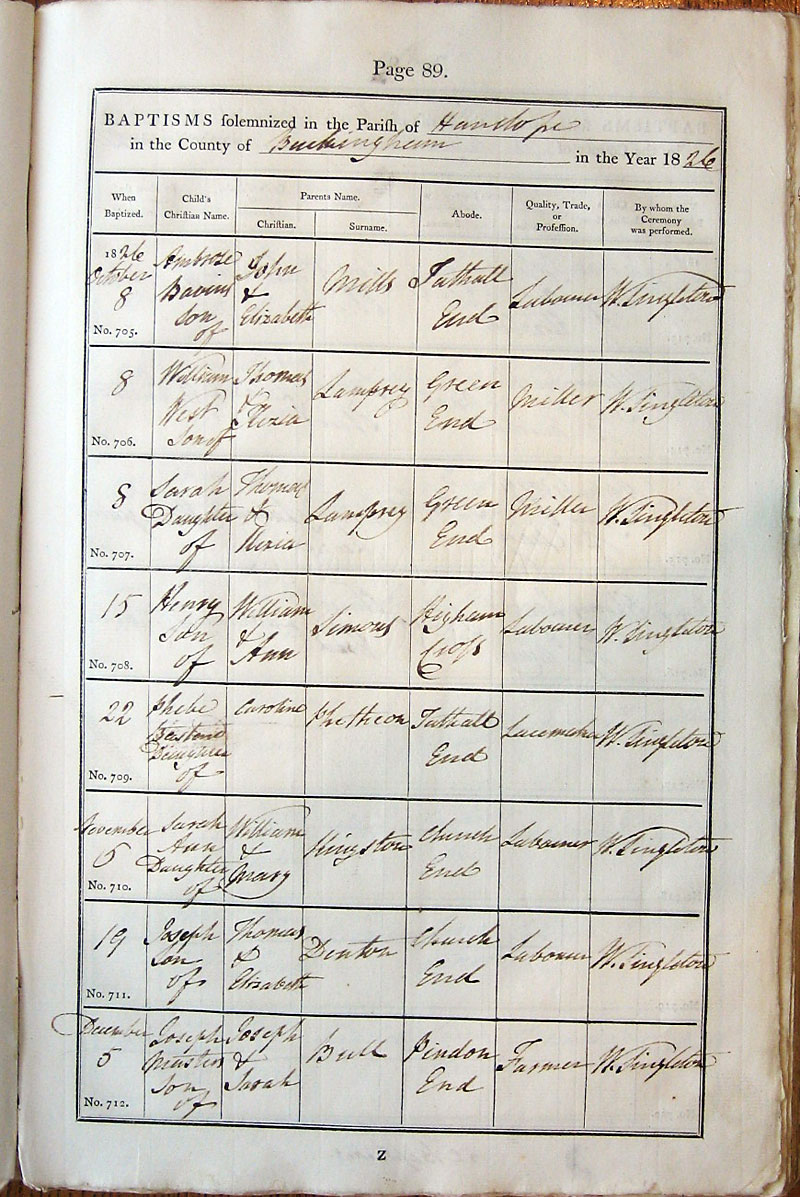 Page 89.
BAPTISMS solemnized in the Parish of Hanslope
in the County of Buckingham in the Year 1826
When Baptized.
Child's Christian Name.
Parents Name.
Christian.
Surname.
Abode.
Quality, Trade, or Profession.
By whom the Ceremony was performed.
1826
October
8
No. 705.
Ambrose
son
of
John
&
Elizabeth
Mills
Tathall
End
Labourer
W. Singleton
8
No. 706.
William
West
Son of
Thomas
&
Kezia
Lamprey
Green
End
Miller
W. Singleton
8
No. 707.
Sarah
Daughter
of
Thomas
&
Kezia
Lamprey
Green
End
Miller
W. Singleton
15
No. 708.
Henry
Son
of
William
&
Ann
Simons
Higham
Cross
Labourer
W. Singleton
22
No. 709.
Phebe
Daughter
of
Caroline
Tathall
End
Lacemaker
W. Singleton
November
5
No. 710.
Sarah
Ann
Daughter
of
William
&
Mary
Kingston
Church
End
Labourer
W. Singleton
19
No. 711.
Joseph
Son
of
Thomas
&
Elizabeth
Denton
Church
End
Labourer
W. Singleton
December
5
No. 712.
Joseph
Son
of
Joseph
&
Sarah
Bull
Pindon
End
Farmer
W. Singleton
Z